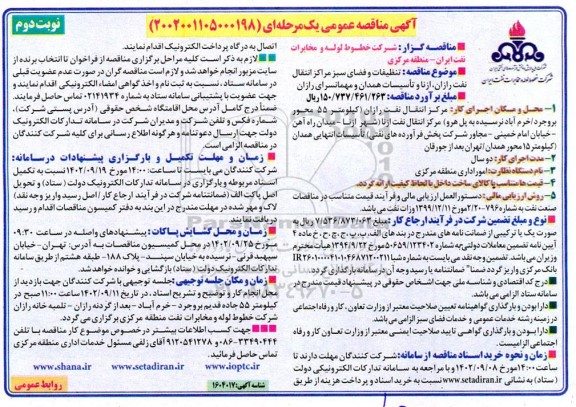 آگهی مناقصه عمومی یک مرحله‌ای (۲۰۰۲۰۰۱۱۰۵۰۰۰۱۹۸)
نوبت دوم
مناقصه گزار: شرکت خطوط لوله و مخابرات
نفت ایران - منطقه مرکزی
موضوع مناقصه: تنظیفات و فضای سبز مراکز انتقال
نفت رازان، ازنا و تأسیسات همدان و مهمانسرای رازان
مبلغ برآورد مناقصه: ۱۵۰/۷۳۷/۴۶۱/۲۶۳ ریال
۱- محل و مکان اجرای کار: مرکز انتقال نفت رازان (کیلومتر ۵۵ محور
بروجرد/خرم آباد نرسیده به پل هرو) مرکز انتقال نفت ازنا (شهر ازنا - میدان راه آهن
- خیابان امام خمینی - مجاور شرکت پخش فرآورده های نفتی) تأسیسات انتهایی همدان
(کیلومتر ۱۵ محور همدان/تهران بعد از جورقان)
۲- مدت اجرای کار: دو سال
۳- نام دستگاه نظارت: امور اداری منطقه مرکزی
۴- قیمت ها متناسب با کالای ساخت داخل با لحاظ کیفیت ارائه گردد.
۵- روش ارزیابی مالی: دستورالعمل ارزیابی مالی و فرآیند قیمت متناسب در مناقصات
نوع و مبلغ تضمین شرکت در فرآیند ارجاع کار: مبلغ ۷/۵۳۶/۸۷۳/۰۶۳ ریال به
صورت یک یا ترکیبی از ضمانت نامه های مندرج در بندهای الف، ب، پ، ج، ح، خ ماده ۴
آیین نامه تضمین معاملات دولتی به شماره ۱۲۳۴۰۲/ت۵۰۶۵۹ه مورخ ۱۳۹۴/۹/۲۲ هیأت محترم
درج کد اقتصادی و شناسه ملی جهت اشخاص حقوقی در پیشنهاد قیمت مندرج در
سامانه ستاد الزامی می باشد.
دارا بودن و بارگذاری گواهینامه تعیین صلاحیت معتبر از وزارت تعاون، کار و رفاه اجتماعی
در زمینه رشته خدمات عمومی و خدمات فضای سبز الزامی می باشد.
دارا بودن و بارگذاری گواهی تایید صلاحیت ایمنی معتبر از وزارت تعاون کار و رفاه
اجتماعی الزامیست.
زمان و نحوه خرید اسناد مناقصه از سامانه: شرکت کنندگان مهلت دارند تا
ساعت ۱۴:۰۰ مورخ ۱۴۰۲/۰۹/۰۸ و با مراجعه به سامانه تدارکات الکترونیکی دولت
(ستاد) به نشانی www.setadiran.ir نسبت به خرید اسناد و پرداخت هزینه از طریق
اتصال به درگاه پرداخت الکترونیک اقدام نمایند.
لازم به ذکر است کلیه مراحل برگزاری مناقصه از فراخوان تا انتخاب برنده از
سایت مزبور انجام خواهد شد و لازم است مناقصه گران در صورت عدم عضویت قبلی
در سامانه ستاد، نسبت به ثبت نام و اخذ گواهی امضاء الکترونیکی اقدام نمایند و
جهت عضویت با پشتیبانی سامانه ستاد به شماره ۰۲۱۴۱۹۳۴ تماس حاصل فرمایند.
ضمناً درج کامل آدرس محل اقامتگاه شخص حقوقی (آدرس پستی شرکت)،
شماره فکس و تلفن شرکت و مدیران شرکت در سامانه تدارکات الکترونیک
دولت جهت ارسال دعوتنامه و هرگونه اطلاع رسانی برای کلیه شرکت کنندگان
در مناقصه الزامی است.
زمان و مهلت تکمیل و بارگزاری پیشنهادات در سامانه:
شرکت کنندگان می بایست تا ساعت ۱۴:۰۰ مورخ ۱۴۰۲/۰۹/۱۹ نسبت به تکمیل
اسناد مربوطه و بارگزاری در سامانه تدارکات الکترونیکی دولت (ستاد) و تحویل
اصل پاکت الف (ضمانتنامه شرکت در فرآیند ارجاع کار/ اصل رسید واریز وجه نقد)
لاک و مهر شده در مهلت مندرج در این بند به دفتر کمیسیون مناقصات اقدام و رسید
دریافت نمایند.
زمان و محل گشایش پاکات: پیشنهادهای واصله در ساعت ۰۹:۳۰
مورخ ۱۴۰۲/۰۹/۲۵ در محل کمیسیون مناقصات به آدرس: تهران - خیابان
سپهبد قرنی - نرسیده به خیابان سپند - پلاک ۱۸۸ - طبقه هشتم از طریق سامانه
تدارکات الکترونیک دولت (ستاد) بازگشایی و خوانده خواهد شد.
زمان و مکان جلسه توجیهی: جلسه توجیهی با شرکت کنندگان جهت بازدید از
محل انجام کار و توضیح و تشریح اسناد، در تاریخ ۱۴۰۲/۰۹/۱۱ ساعت ۱۱:۰۰ صبح در
کیلومتر ۵۵ جاده قدیم بروجرد - خرم آباد - بعد از گردنه رازان - تلمبه خانه رازان
شرکت خطوط لوله و مخابرات نفت منطقه مرکزی برگزار می گردد.
جهت کسب اطلاعات بیشتر در خصوص موضوع کار مناقصه با تلفن
۰۸۶-۳۳۴۹۰۴۴۴ و ۰۹۱۲۰۵۴۱۲۷۸ آقای زلقی مسئول خدمات اداری منطقه مرکزی
تماس حاصل فرمائید.
www.shana.ir www.setadiran.ir www.ioptc.ir
شناسه آگهی: ۱۶۰۴۰۱۷
روابط عمومی